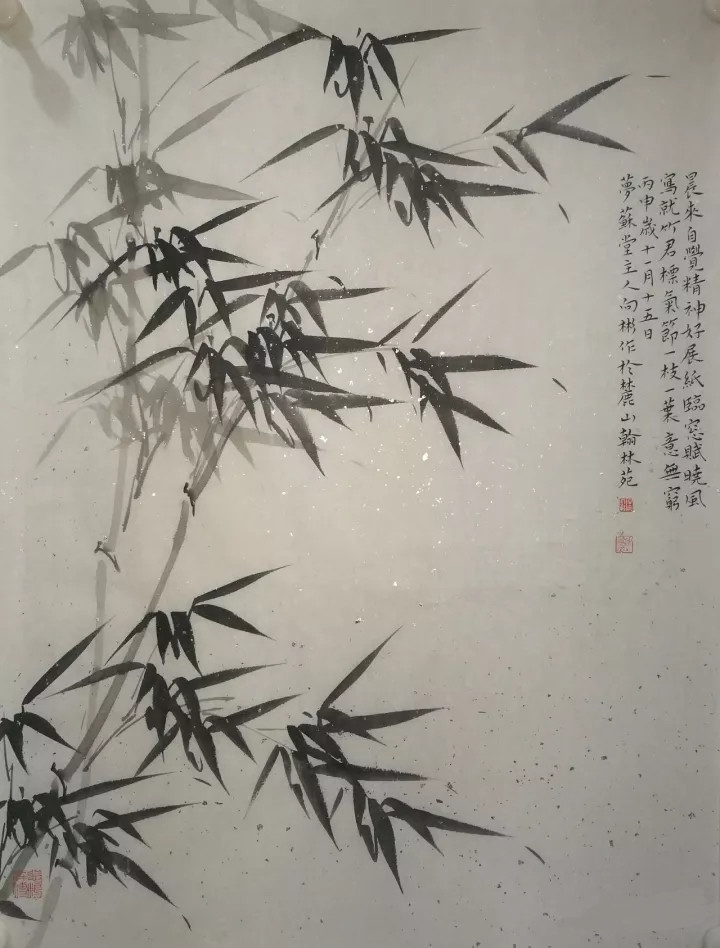 晨來自覺精神好展紙臨窓賦曉風
寫就竹君標氣節一枝一葉意無窮
丙申歲十一月十五日
夢蘇堂主人向彬作於麓山翰林苑